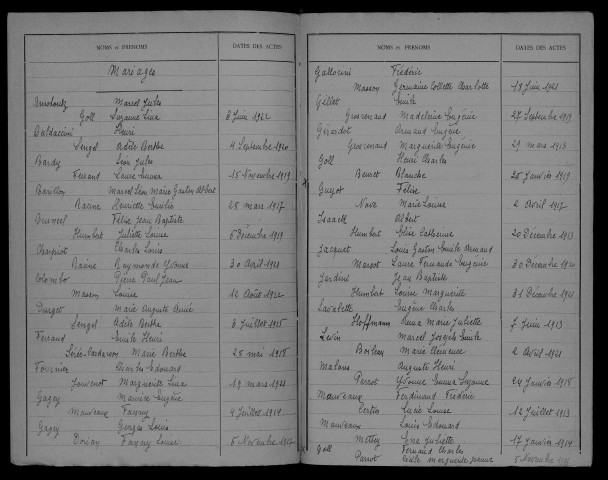 NOMS et PRENOMS DATES DES ACTES
Mariages
Marcel Jules
Goll Suzanne Lina 3 Juin 1922
Baldaccini Henri
Sengel Adèle Berthe 4 Septembre 1920
Bardy Léon Jules
Ferrand Laure Emma 15 Novembre 1919
Barillon Marcel Léon Marie Gaston Albert
Racine Henriette Emilie 28 mars 1917
Félix Jean Baptiste
Humbert Juliette Louise 6 Décembre 1919
Charpiot Charles Louis
Racine Raymonde Yvonne 30 Avril 1921
Colombo Pierre Paul Jean
Masson Louise 12 Août 1922
Marie Auguste Aimé
Sengel Adèle Berthe 3 Juillet 1915
Ferrand Emile Henri
Marie Berthe 28 mai 1918
Fournier Charles Edouard
Jouvenot Marguerite Lina 19 mars 1921
Gagey Maurice Eugène
Mauveaux Fanny 4 Juillet 1914
Gagey Georges Louis
Dorian Fanny Louise 6 Novembre
NOMS et PRENOMS DATES DES ACTES
Frédéric
Masson Germaine Collette Charlotte 18 Juin 1921
Gillet Emile
Grosrenaud Madeleine Eugénie 27 Septembre 1919
Gérardot Armand Eugène
Grosrenaud Marguerite Eugénie 29 mars 1913
Goll Henri Charles
Beuret Blanche 25 Janvier 1919
Guyot Félix
Marie Louise 2 Avril 1917
Albert
Humbert Elise Catherine 20 Décembre 1913
Jacquet Louis Gaston Emile Armand
Margot Laure Fernande Eugénie 30 Décembre 1920
Jardini Jean Baptiste
Humbert Louise Marguerite 31 Décembre 1921
Lavalette Eugène Charles
Hoffmann Anna Marie Juliette 7 Juin 1913
Marcel Joseph Emile
Marie Clémence 2 Avril 1921
Auguste Henri
Perrot Yvonne Emma Suzanne 24 Janvier 1918
Mauveaux Ferdinand Frédéric
Lucie Louise 12 Juillet 1913
Mauveaux Louis Edouard
Juliette 17 Janvier 1914
Goll Fernand Charles
Perrot Cécile Marguerite Jeanne 5 Novembre